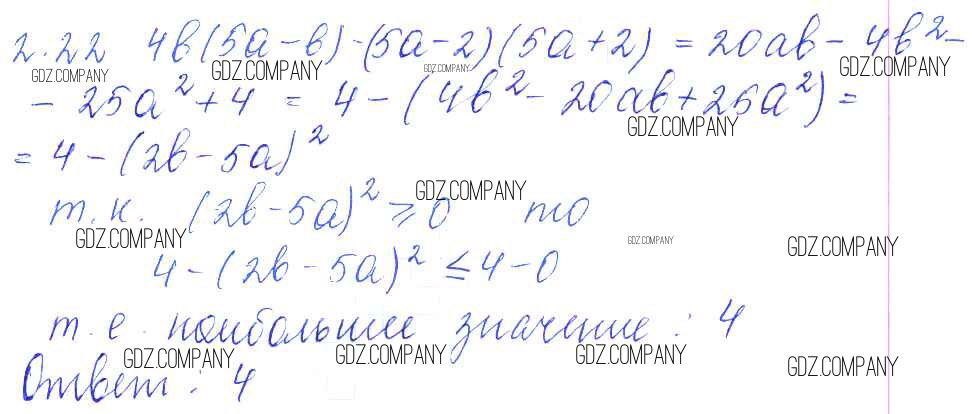 2.22 4b(5a-b)-(5a-2)(5a+2) = 20ab - 4b² -
GDZ.COMPANY GDZ.COMPANY GDZ.COMPANY GDZ.COMPANY
- 25a² + 4 = 4 - (4b² - 20ab + 25a²) =
GDZ.COMPANY
= 4 - (2b - 5a)²
т.к. (2b-5a)² ⩾ 0 то
GDZ.COMPANY
GDZ.COMPANY GDZ.COMPANY GDZ.COMPANY
4 - (2b - 5a)² ≤ 4 - 0
т.е. наибольшее значение : 4
GDZ.COMPANY GDZ.COMPANY GDZ.COMPANY GDZ.COMPANY
Ответ : 4